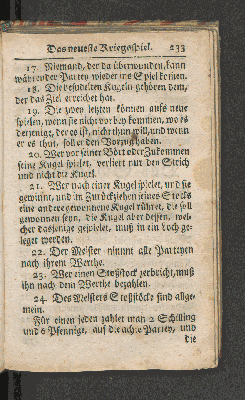 Das neueste Kriegsspiel. 233
17. Niemand, der da überwunden, kann
während der Partey wieder ins Spiel kommen.
18. Die besudelten Kugeln gehören dem,
der das Ziel erreichet hat.
19. Die zwey letzten können aufs neue
spielen, wenn sie nicht vorbey kommen, wo es
derjenige, der es ist, nicht thun will, und wenn
er es thut, soll er den Vorzug haben.
20. Wer vor seiner Bort oder Zukommen
seine Kugel spielet, verliert nur den Strich
und nicht die Kugel.
21. Wer nach einer Kugel spielet, und sie
gewinnt, und im Zurückziehen seines Stocks
eine andere gewonnene Kugel rühret, die soll
gewonnen seyn, die Kugel aber dessen, wel-
cher dasjenige gespielet, muß in ein Loch ge-
leget werden.
22. Der Meister nimmt alle Parteyen
nach ihrem Werthe.
23. Wer einen Stoßstock zerbricht, muß
ihn nach dem Werthe bezahlen.
24. Des Meisters Stoßstöcke sind allge-
mein.
Für einen jeden zahlet man 2 Schilling
und 6 Pfennige, auf die achte Partey, und
die